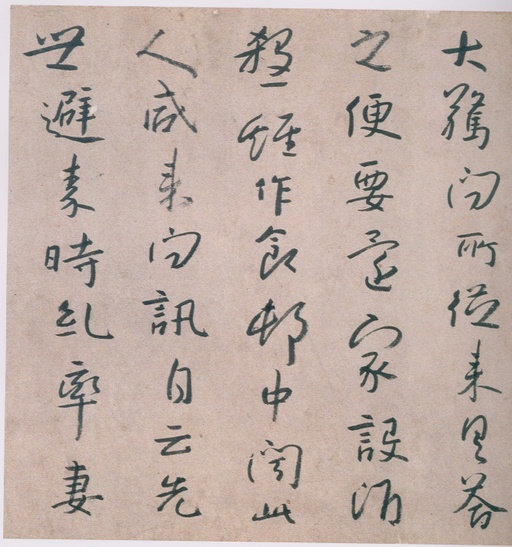 大驚問所從來具荅
之便要還家設酒
殺一雞作食邨中聞此
人咸來問訊自云先
世避秦時亂率妻